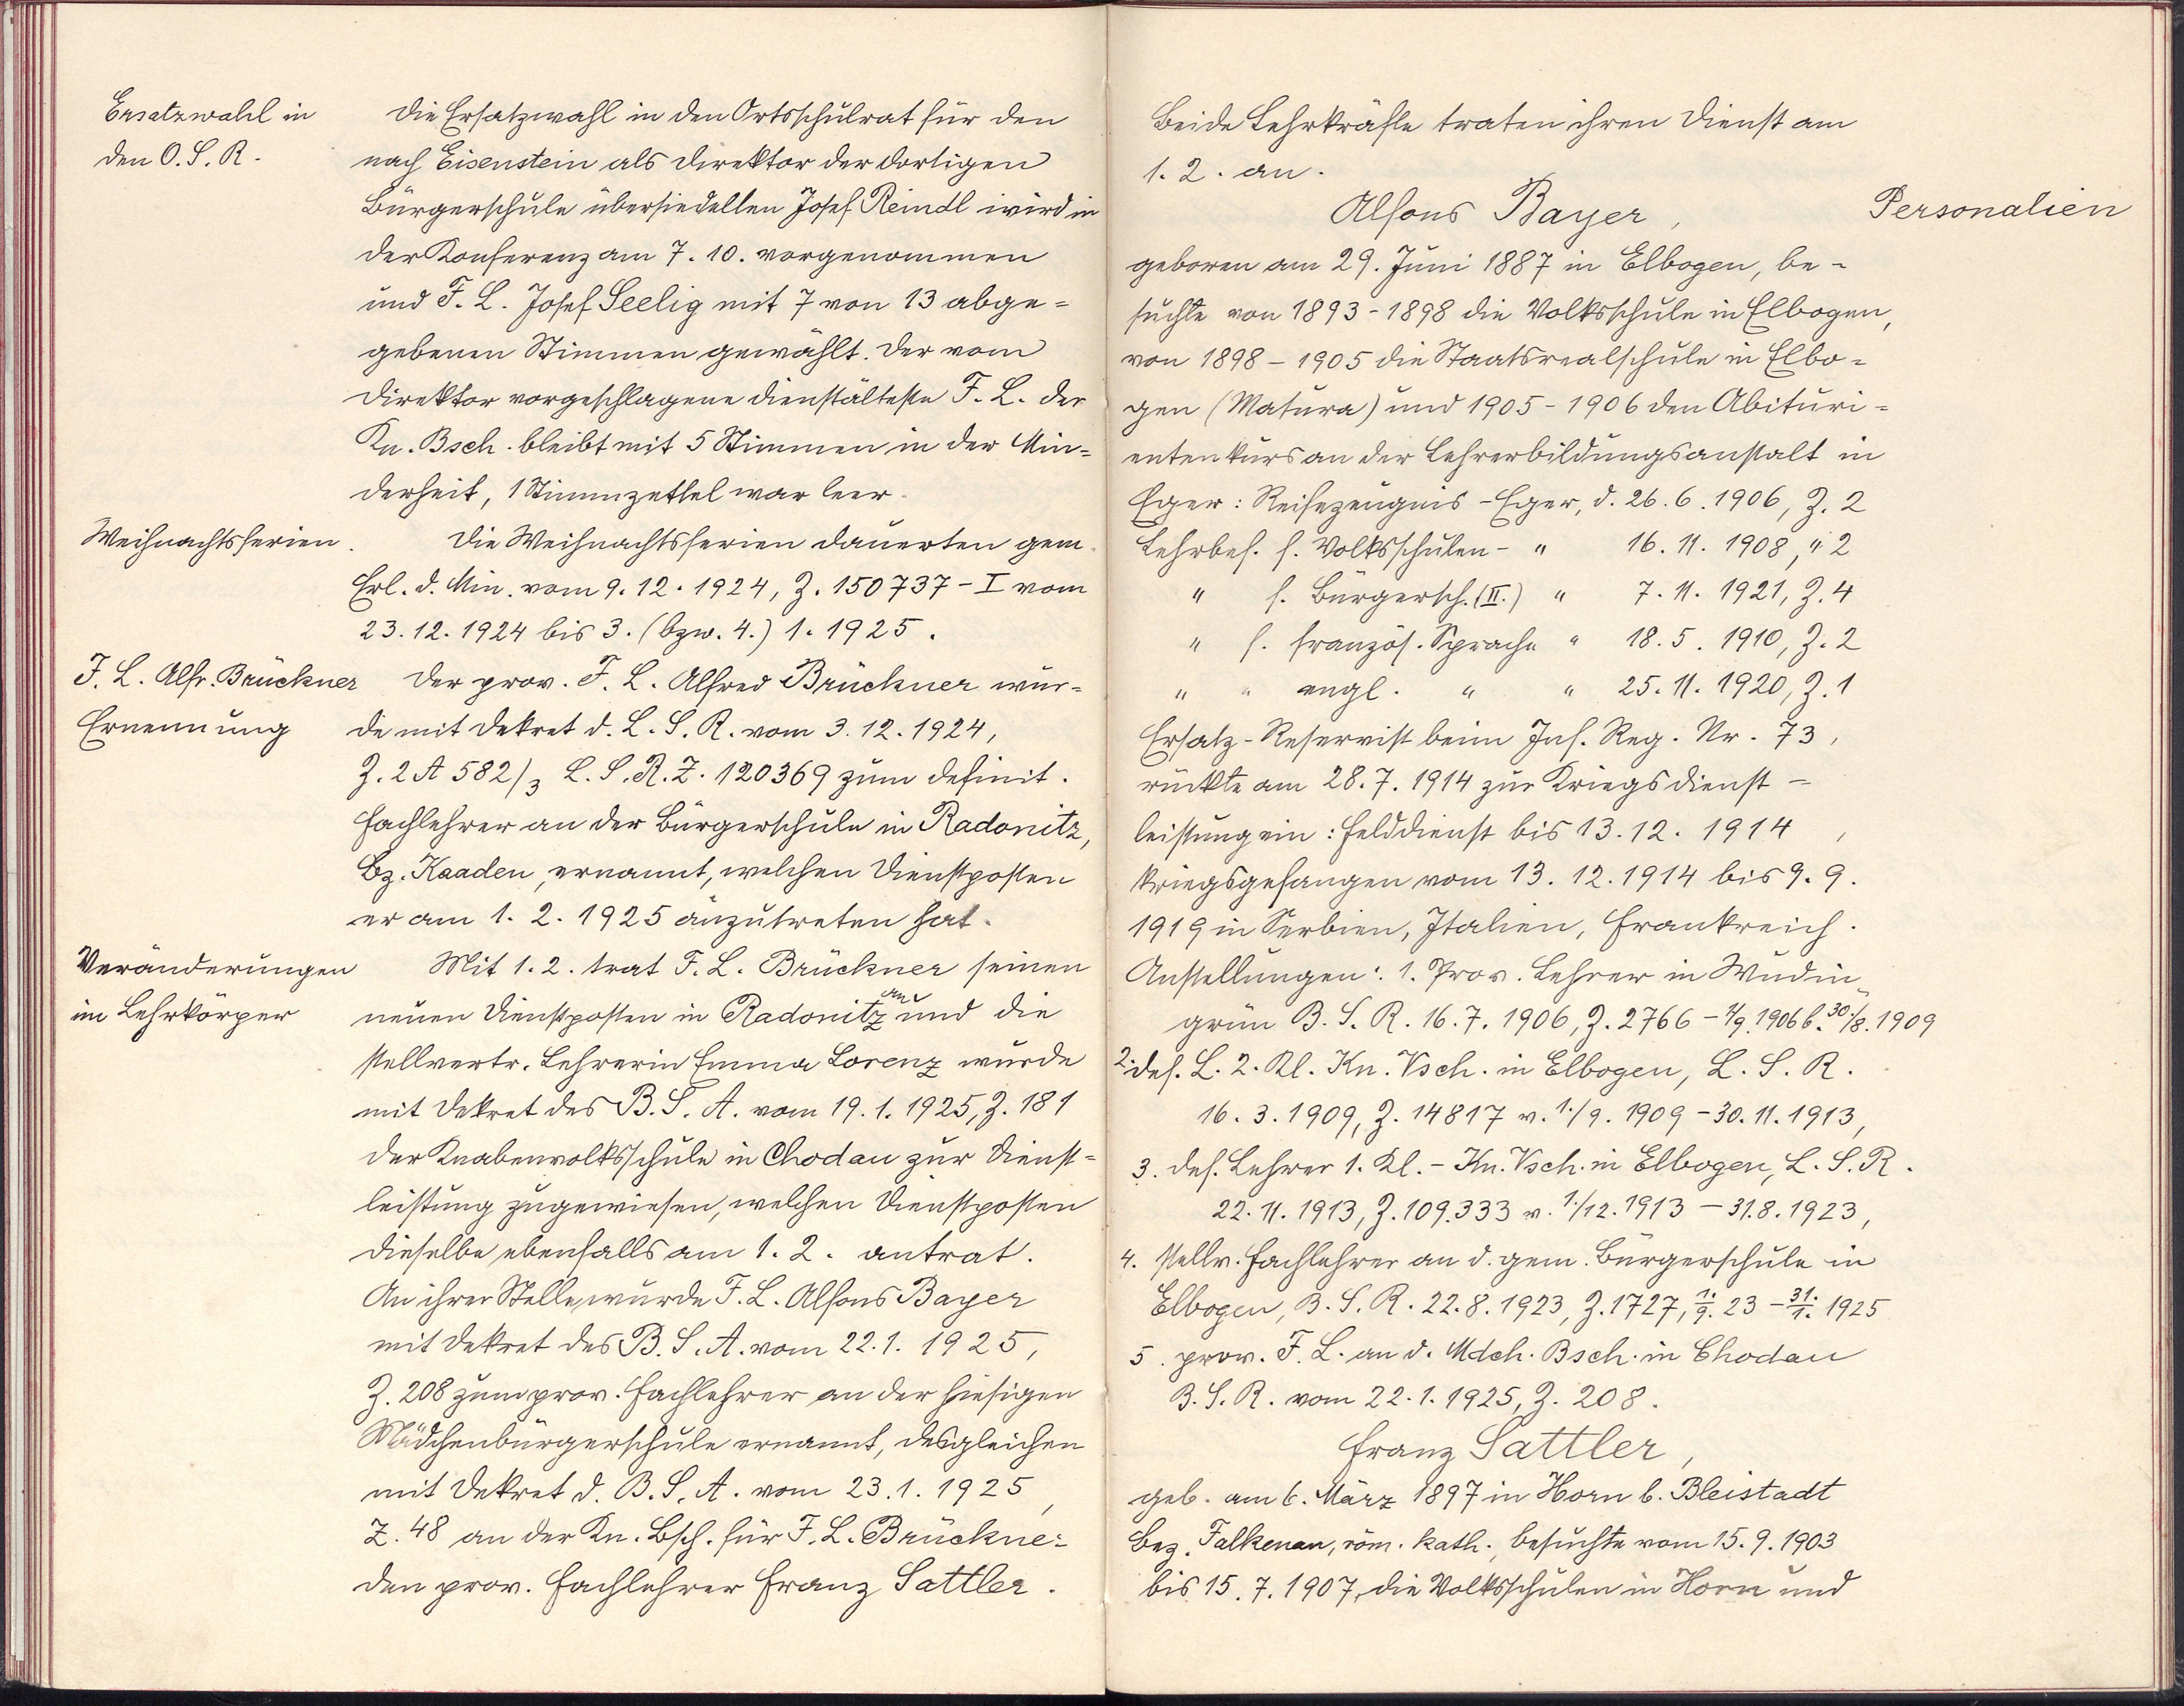 Ersatzwahl in
den O.S.R.
Die Ersatzwahl in den Ortsschulrat für den
nach Eisenstein als Direktor der dortigen
Bürgerschule übersiedelten Josef Reindl wird in
der Konferenz am 7. 10. vorgenommen
und F. L. Josef Seelig mit 7 von 13 abge=
gebenen Stimmen gewählt. Der vom
Direktor vorgeschlagene dienstälteste F. L. der
Kn. Bsch. bleibt mit 5 Stimmen in der Min=
derheit, 1 Stimmzettel war leer.
Weihnachtsferien.
Die Weihnachtsferien dauerten gem.
Erl. d. Min. vom 9. 12. 1924, Z. 150737 - I vom
23. 12. 1924 bis 3. (bzw. 4.) 1. 1925.
F. L. Alfr. Brückner
Ernennung
Der prov. F. L. Alfred Brückner wur=
de mit Dekret d. L. S. R. vom 3. 12. 1924,
Z. 2 A 582/3 L. S. R. Z. 120369 zum definit.
Fachlehrer an der Bürgerschule in Radonitz,
Bz. Kaaden, ernannt, welchen Dienstposten
er am 1. 2. 1925 anzutreten hat.
Veränderungen
im Lehrkörper
Mit 1. 2. trat F. L. Brückner seinen
neuen Dienstposten in Radonitz an und die
stellvertr. Lehrerin Emma Lorenz wurde
mit Dekret des B. S. A. vom 19. 1. 1925, Z. 181
der Knabenvolksschule in Chodau zur Dienst=
leistung zugewiesen, welchen Dienstposten
dieselbe ebenfalls am 1. 2. antrat.
An ihrer Stelle wurde F. L. Alfons Bayer
mit Dekret des B. S. A. vom 22. 1. 1925,
Z. 208 zum prov. Fachlehrer an der hiesigen
Mädchenbürgerschule ernannt, desgleichen
mit Dekret d. B. S. A. vom 23. 1. 1925,
Z. 48 an der Kn. Bsch. für F. L. Brückner
den prov. Fachlehrer Franz Sattler.
Beide Lehrkräfte traten ihren Dienst am
1. 2. an.
Personalien
Alfons Bayer,
geboren am 29. Juni 1887 in Elbogen, be-
suchte von 1893 - 1898 die Volksschule in Elbogen,
von 1898 - 1905 die Staatsrealschule in Elbo=
gen (Matura) und 1905 - 1906 den Abituri=
entenkurs an der Lehrerbildungsanstalt in
Eger: Reifezeugnis - Eger, d. 26. 6. 1906, Z. 2
Lehrbef. f. Volksschulen - " 16. 11. 1908, " 2
" f. Bürgersch. (II.) " 7. 11. 1921, Z. 4
" f. französ. Sprache " 18. 5. 1910, Z. 2
" " engl. " " 25. 11. 1920, Z. 1
Ersatz-Reservist beim Inf. Reg. Nr. 73,
rückte am 28. 7. 1914 zur Kriegsdienst-
leistung ein: Felddienst bis 13. 12. 1914,
kriegsgefangen vom 13. 12. 1914 bis 9. 9.
1919 in Serbien, Italien, Frankreich.
Anstellungen: 1. Prov. Lehrer in Wudin=
grün B. S. R. 16. 7. 1906, Z. 2766 - 1/9. 1906 b. 30./8. 1909
2. def. L. 2. Kl. Kn. Vsch. in Elbogen, L. S. R.
16. 3. 1909, Z. 14817 v. 1./9. 1909 - 30. 11. 1913,
3. def. Lehrer 1. Kl. - Kn. Vsch. in Elbogen, L. S. R.
22. 11. 1913, Z. 109.333 v. 1./12. 1913 - 31. 8. 1923,
4. stellv. Fachlehrer an d. gem. Bürgerschule in
Elbogen, B. S. R. 22. 8. 1923, Z. 1727, 1./9. 23 - 31./1. 1925
5. prov. F. L. an d. Mdch. Bsch. in Chodau
B. S. R. vom 22. 1. 1925, Z. 208.
Franz Sattler,
geb. am 6. März 1897 in Horn b. Bleistadt
Bez. Falkenau, röm. kath., besuchte vom 15. 9. 1903
bis 15. 7. 1907, die Volksschulen in Horn und